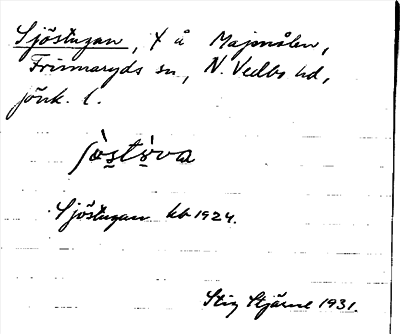 Sjöstugan, t å Majmålen,
Frinnaryds sn, N. Vedbo hd,
jönk. l.
jòstòva
Sjöstugan kb 1924.
Stig Stjärne 1931.